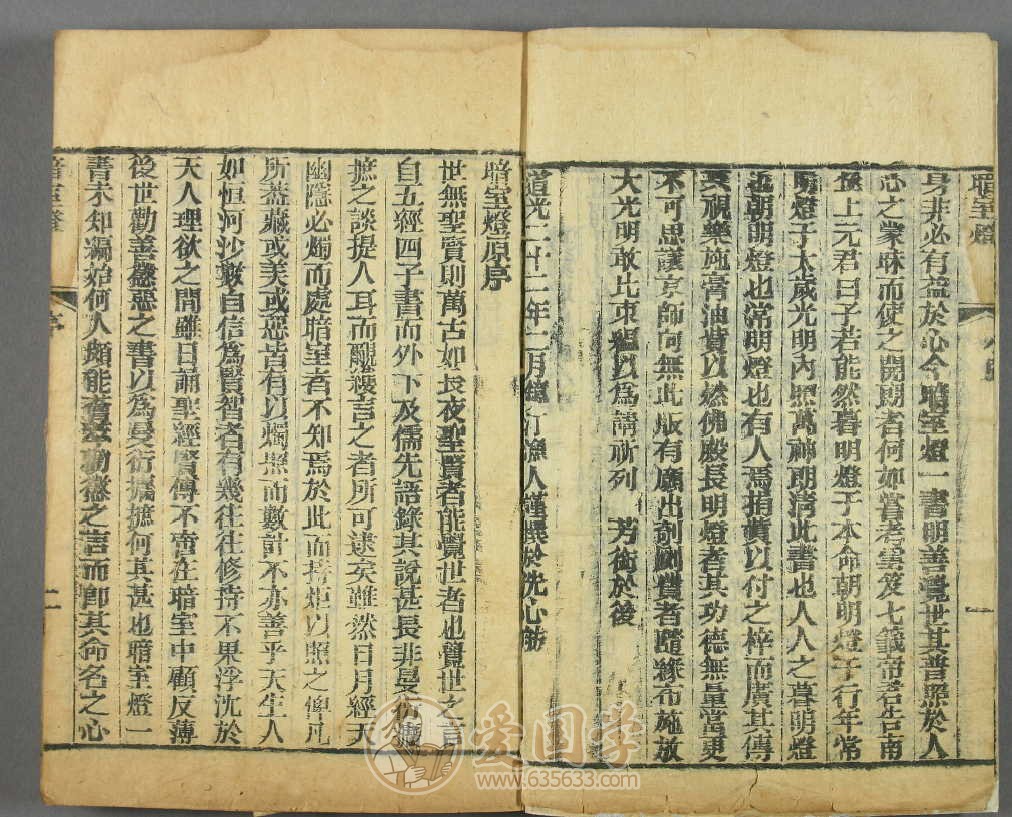 暗室燈
一
身非必有益於心今暗室燈一書明善覺世其普照於人
心之蒙昧而使之開朗者何如嘗考雲笈七籤帝君告南
極上元君曰子若能然暮明燈于本命朝明燈于行年常
明燈于太歲光明內照萬神朗清此書也人人之暮明燈
也朝明燈也常明燈也有人焉捐貲以付之梓而廣其傳
其視樂施膏油貲以燃佛殿長明燈者其功德無量當更
不可思議京師向無此版有願出剞劂貲者隨緣布施放
大光明敢此束縕以為請祈列 芳銜於後
道光二十二年二月 汀漁人謹撰於洗心舫
暗室燈原序
世無聖賢則萬古如長夜聖賢者能覺世者也覺世之言
自五經四子書而外下及儒先語錄其說甚長非曼衍攟
摭之談提人耳而覼縷言之者所可逮矣雖然日月經天
幽隱必燭而處暗室者不知焉於此而持炬以照之俾凡
所蓋藏或美或惡皆有以燭照而數計不亦善乎天生人
如恒河沙數自信為賢智者有幾往往修持不果浮沈於
天人理欲之間雖日誦聖經賢傳不啻在暗室中顧反薄
後世勸善懲惡之書以為曼衍攟摭何其甚也暗室燈一
書未知編始何人頗能薈萃勸懲之言而卽其命名之心
暗室燈
序
二
愛國學
www.635633.com